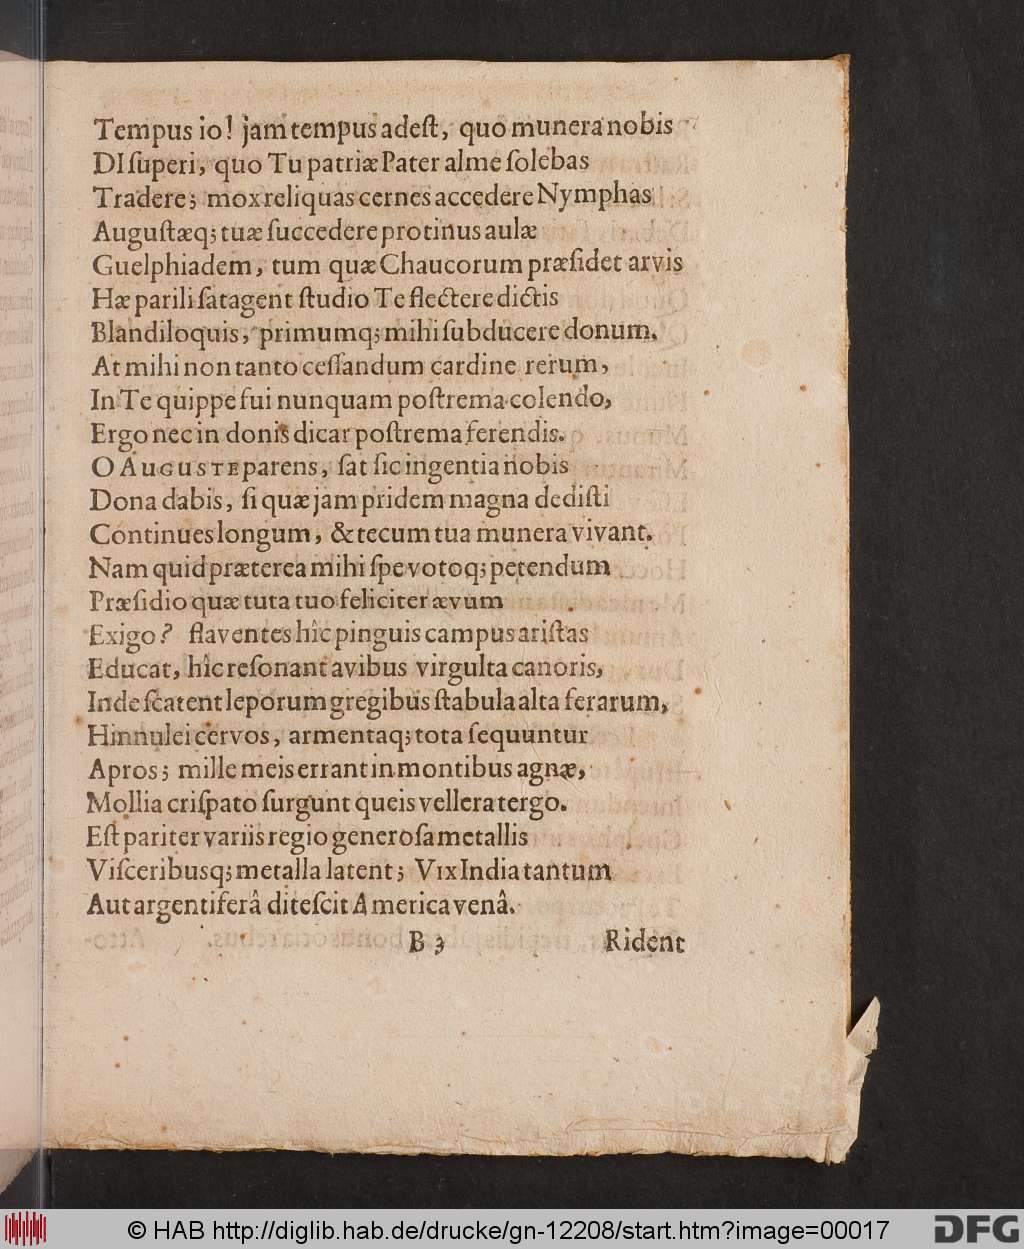 Tempus io! jam tempus adeſt, quo munera nobis
DI ſuperi, quo Tu patriæ Pater alme ſolebas
Tradere; mox reliquas cernes accedere Nymphas
Auguſtæq; tuæ ſuccedere protinus aulæ
Guelphiadem, tum quæ Chaucorum præſidet arvis
Hæ parili ſatagent ſtudio Te flectere dictis
Blandiloquis, primumq; mihi ſubducere donum.
At mihi non tanto ceſſandum cardine rerum,
In Te quippe fui nunquam poſtrema colendo,
Ergo nec in donis dicar poſtrema ferendis.
O AUGUSTE parens, ſat ſic ingentia nobis
Dona dabis, ſi quæ jam pridem magna dediſti
Continues longum, & tecum tua munera vivant.
Nam quid præterea mihi ſpe votoq; petendum
Præſidio quæ tuta tuo feliciter ævum
Exigo? flaventes hîc pinguis campus ariſtas
Educat, hîc reſonant avibus virgulta canoris,
Inde ſcatent leporum gregibus ſtabula alta ferarum,
Hinnulei cervos, armentaq; tota ſequuntur
Apros; mille meis errant in montibus agnæ,
Mollia criſpato ſurgunt queis vellera tergo.
Eſt pariter variis regio generoſa metallis
Viſceribusq; metalla latent; Vix India tantum
Aut argentiferâ diteſcit America venâ.
B 3 Rident
© HAB http://diglib.hab.de/drucke/gn-12208/start.htm?image=00017
DFG